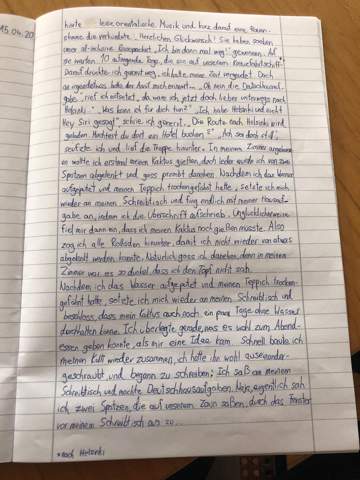 15.04.20
hörte leise orientalische Musik und kurz darauf eine Frauen-
stimme die verkündete: „Herzlichen Glückwunsch! Sie haben soeben
unser all-inclusive Reisepaket „Ich bin dann mal weg!" gewonnen. Auf
sie warten 10 aufregende Tage, die sie auf unserem Kreuzfahrtschiff-
Damit drückte ich genervt weg, ich hatte meine Zeit vergeudet. Doch
"Oh nein die Deutschhausauf-
gabe" rief ich entsetzt, „da wäre ich jetzt doch lieber unterwegs nach
Helsinki." „Was kann ich für dich tun?" „Ich habe Helsinki und nicht
Hey Siri gesagt" schrie ich genervt. „Die Route nach Helsinki wird
geladen. Möchtest du dort ein Hotel buchen?" „Ach sei doch still",
seufzte ich und lief die Treppe hinunter. In meinem Zimmer angekommen
wollte ich erstmal meinen Kaktus gießen, doch leider wurde ich von zwei
Spatzen abgelenkt und goss prompt daneben. Nachdem ich das Wasser
aufgeputzt und meinen Teppich trockengeföhnt hatte, setzte ich mich
wieder an meinen Schreibtisch und fing endlich mit meiner Hausauf-
gabe an, indem ich die Überschrift aufschrieb. Unglücklicherweise
fiel mir dann ein, dass ich meinen Kaktus noch gießen musste. Also
zog ich alle Rollläden hinunter, damit ich nicht wieder von etwas
abgelenkt werden konnte. Natürlich goss ich daneben, denn in meinem
Zimmer war es so dunkel, dass ich den Topf nicht sah.
Nachdem ich das Wasser aufgeputzt und meinen Teppich trocken-
geföhnt hatte, setzte ich mich wieder an meinen Schreibtisch und
beschloss, dass mein Kaktus auch noch ein paar Tage ohne Wasser
durchhalten könne. Ich überlegte gerade, was es wohl zum Abend-
essen geben könnte, als mir eine Idee kam. Schnell baute ich
meinen Kulli wieder zusammen, ich hatte ihn wohl auseinander-
geschraubt, und begann zu schreiben: Ich saß an meinem
Schreibtisch und machte Deutschhausaufgaben. Naja, eigentlich sah
ich zwei Spatzen, die auf unserem Zaun saßen, durch das Fenster
vor meinem Schreibtisch aus zu...
*nach Helsinki